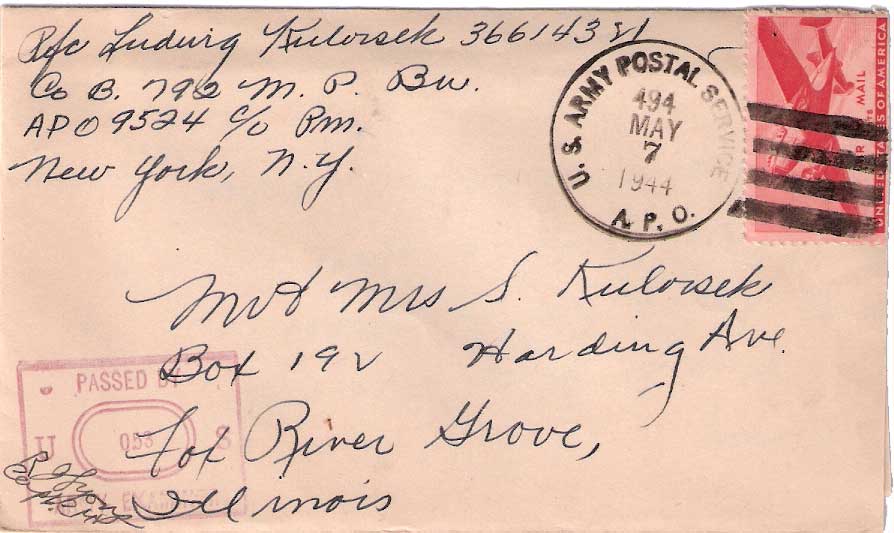 Pfc Ludwig Kulovsek 36614321
Co B. 792 M. P. Bn.
APO 9524 c/o Pm.
New York, N.Y.
U. S. ARMY POSTAL SERVICE
494
MAY
7
1944
A. P. O.
AIR MAIL
UNITED STATES OF AMERICA
Mr & Mrs S. Kulovsek
Box 192 Harding Ave.
Fox River Grove,
Illinois
PASSED BY
U 053 S
ARMY EXAMINER